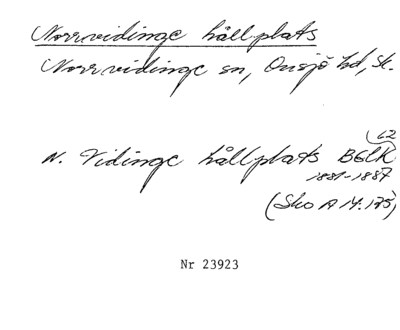 Norrvidinge hållplats
Norrvidinge sn, Onsjö hd, Sk.
62
N. Vidinge hållplats BGLK
1881-1887
(Sko A 14:175)
Nr 23923